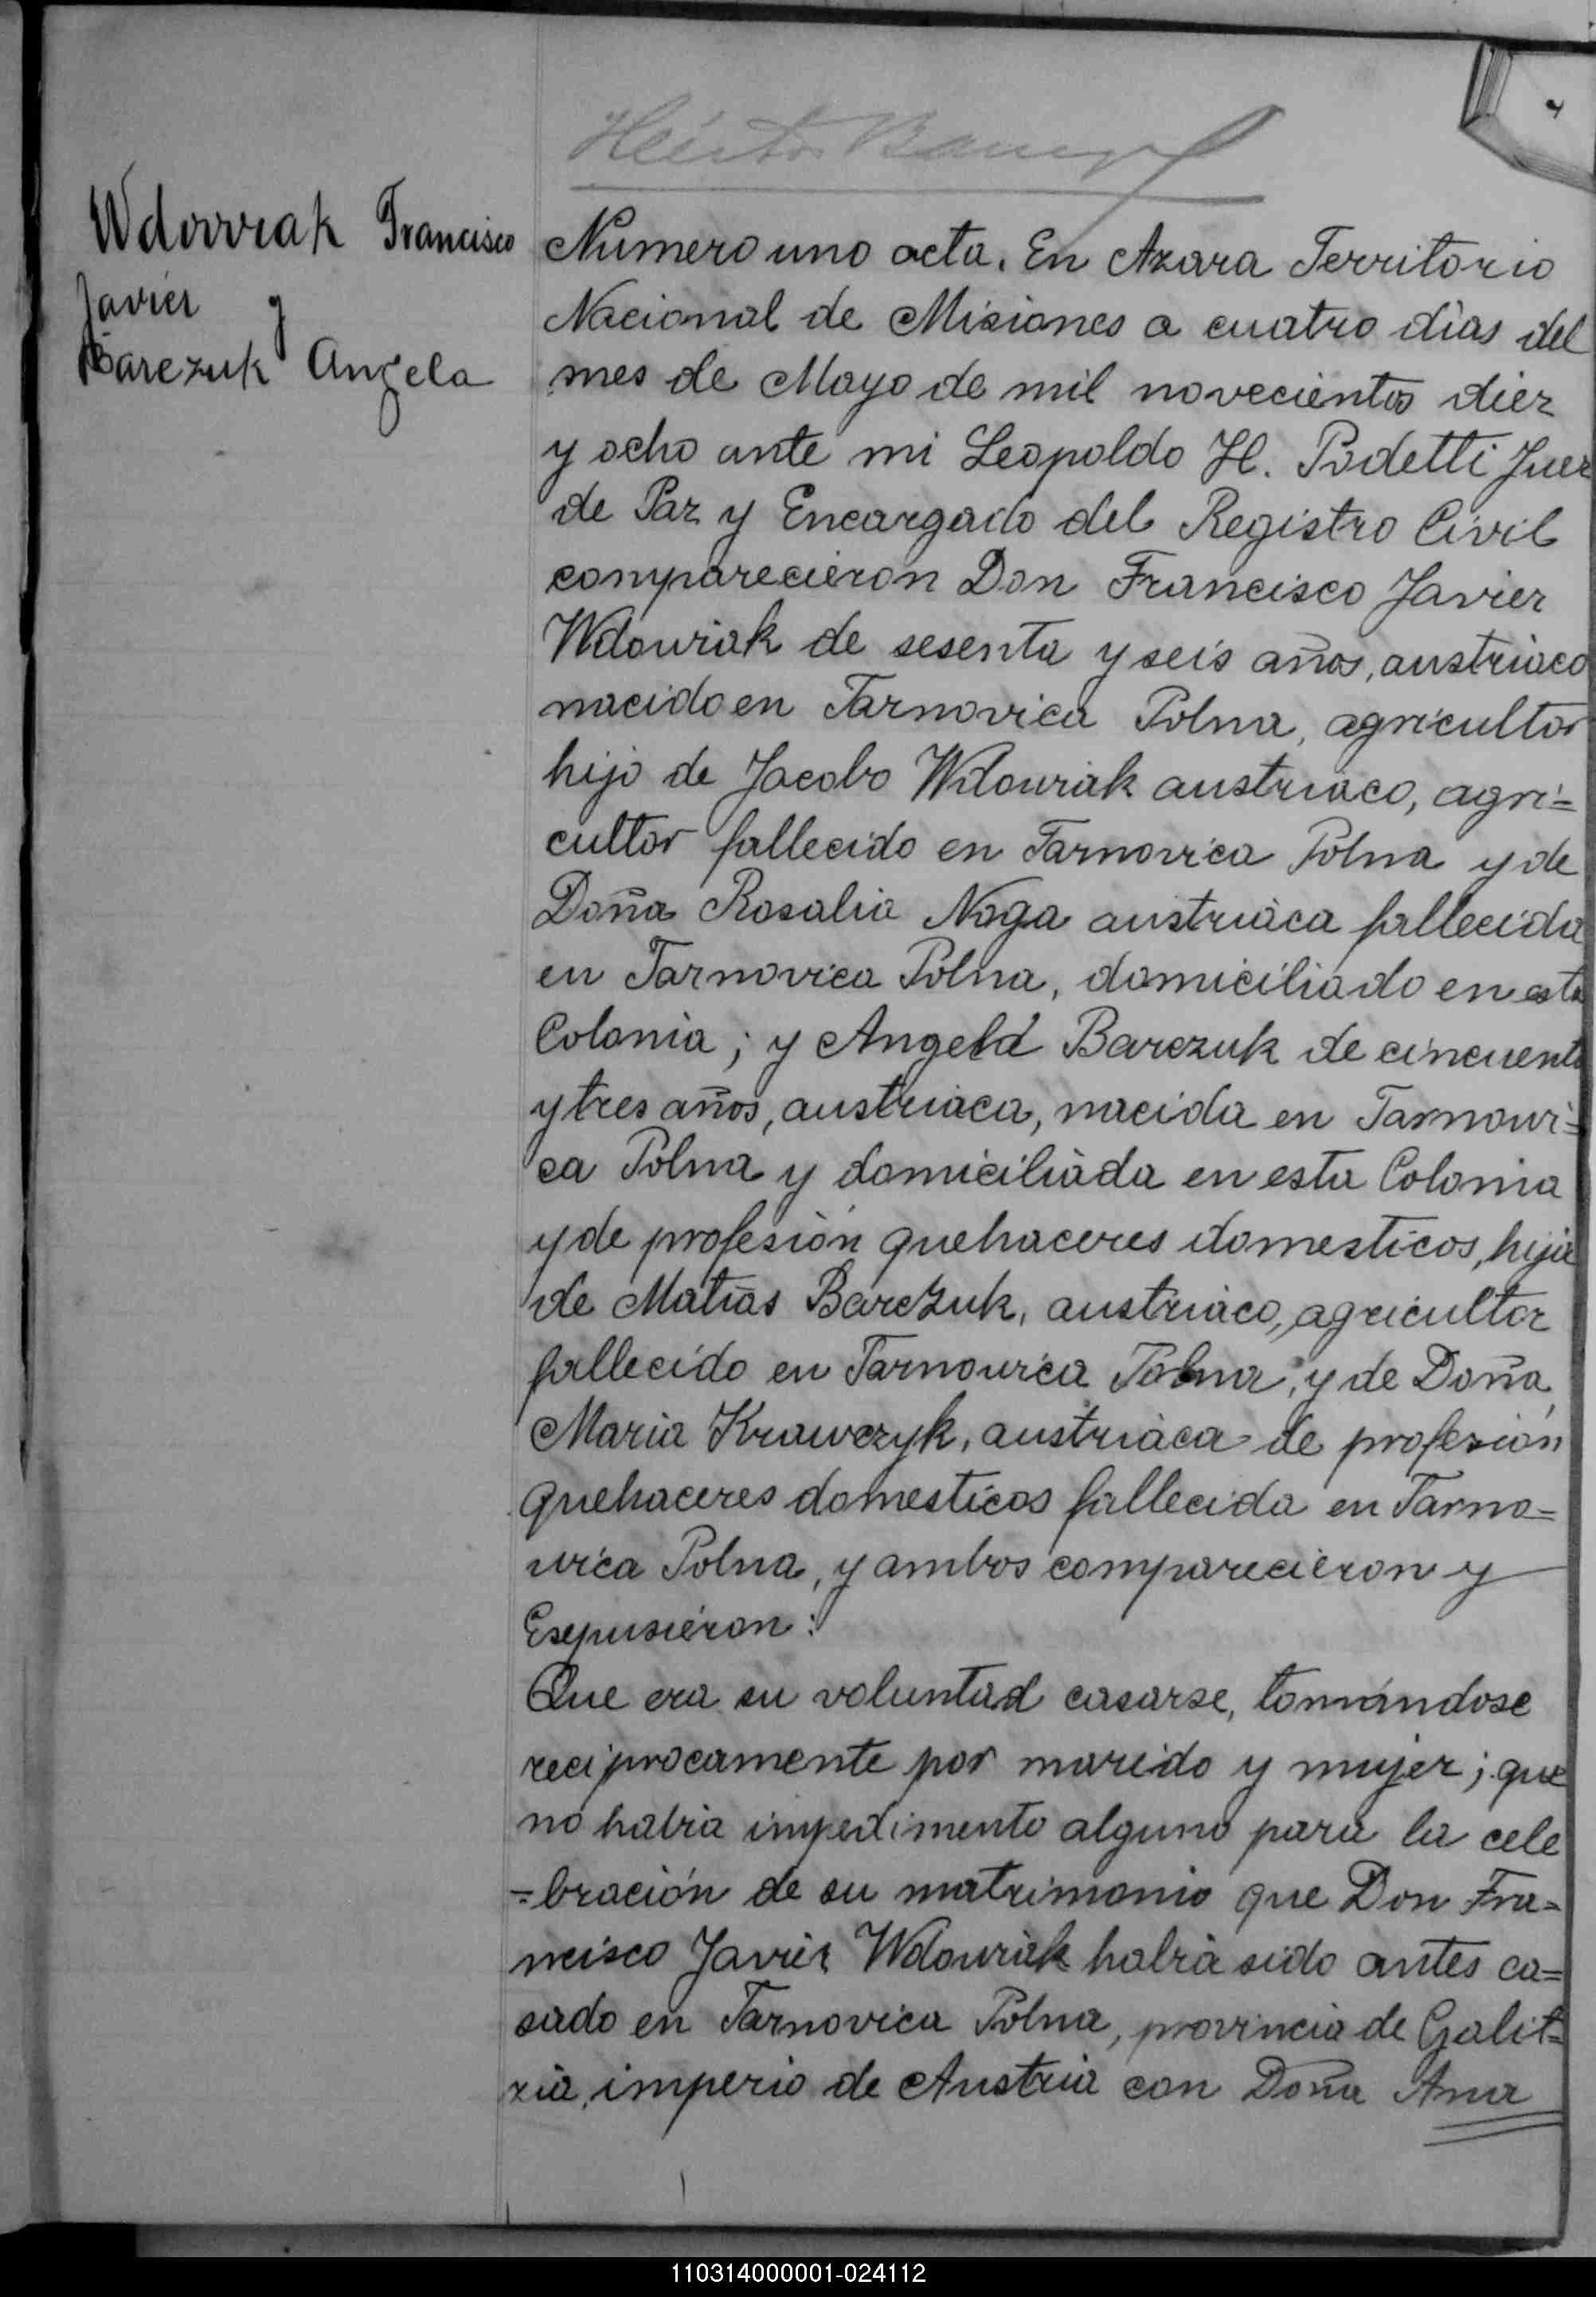 Wdowiak Francisco
Javier y
Barczuk Angela
Numero uno acta. En Azara Territorio
Nacional de Misiones a cuatro dias del
mes de Mayo de mil novecientos diez
y ocho ante mi Leopoldo H. Podetti Juez
de Paz y Encargado del Registro Civil
comparecieron Don Francisco Javier
Wdowiak de sesenta y seis años, austriaco
nacido en Tarnovica Polna, agricultor
hijo de Jacobo Wdowiak austriaco, agri=
cultor fallecido en Tarnovica Polna y de
Doña Rosalia Noga austriaca fallecida
en Tarnovica Polna, domiciliado en esta
Colonia; y Angela Barczuk de cincuenta
y tres años, austriaca, nacida en Tarnowi=
ca Polna y domiciliada en esta Colonia
y de profesión quehaceres domesticos, hija
de Matias Barczuk, austriaco, agricultor
fallecido en Tarnowica Polna, y de Doña
Maria Krawczyk, austriaca de profesión
quehaceres domesticos fallecida en Tarno=
wica Polna, y ambos comparecieron y
Esepusieron:
Que era su voluntad casarse, tomándose
reciprocamente por marido y mujer; que
no habia impedimento alguno para la cele
=bración de su matrimonio que Don Fra=
ncisco Javier Wdowiak habia sido antes ca=
sado en Tarnovica Polna, provincia de Galit=
zia, imperio de Austria con Doña Ana
110314000001-024112